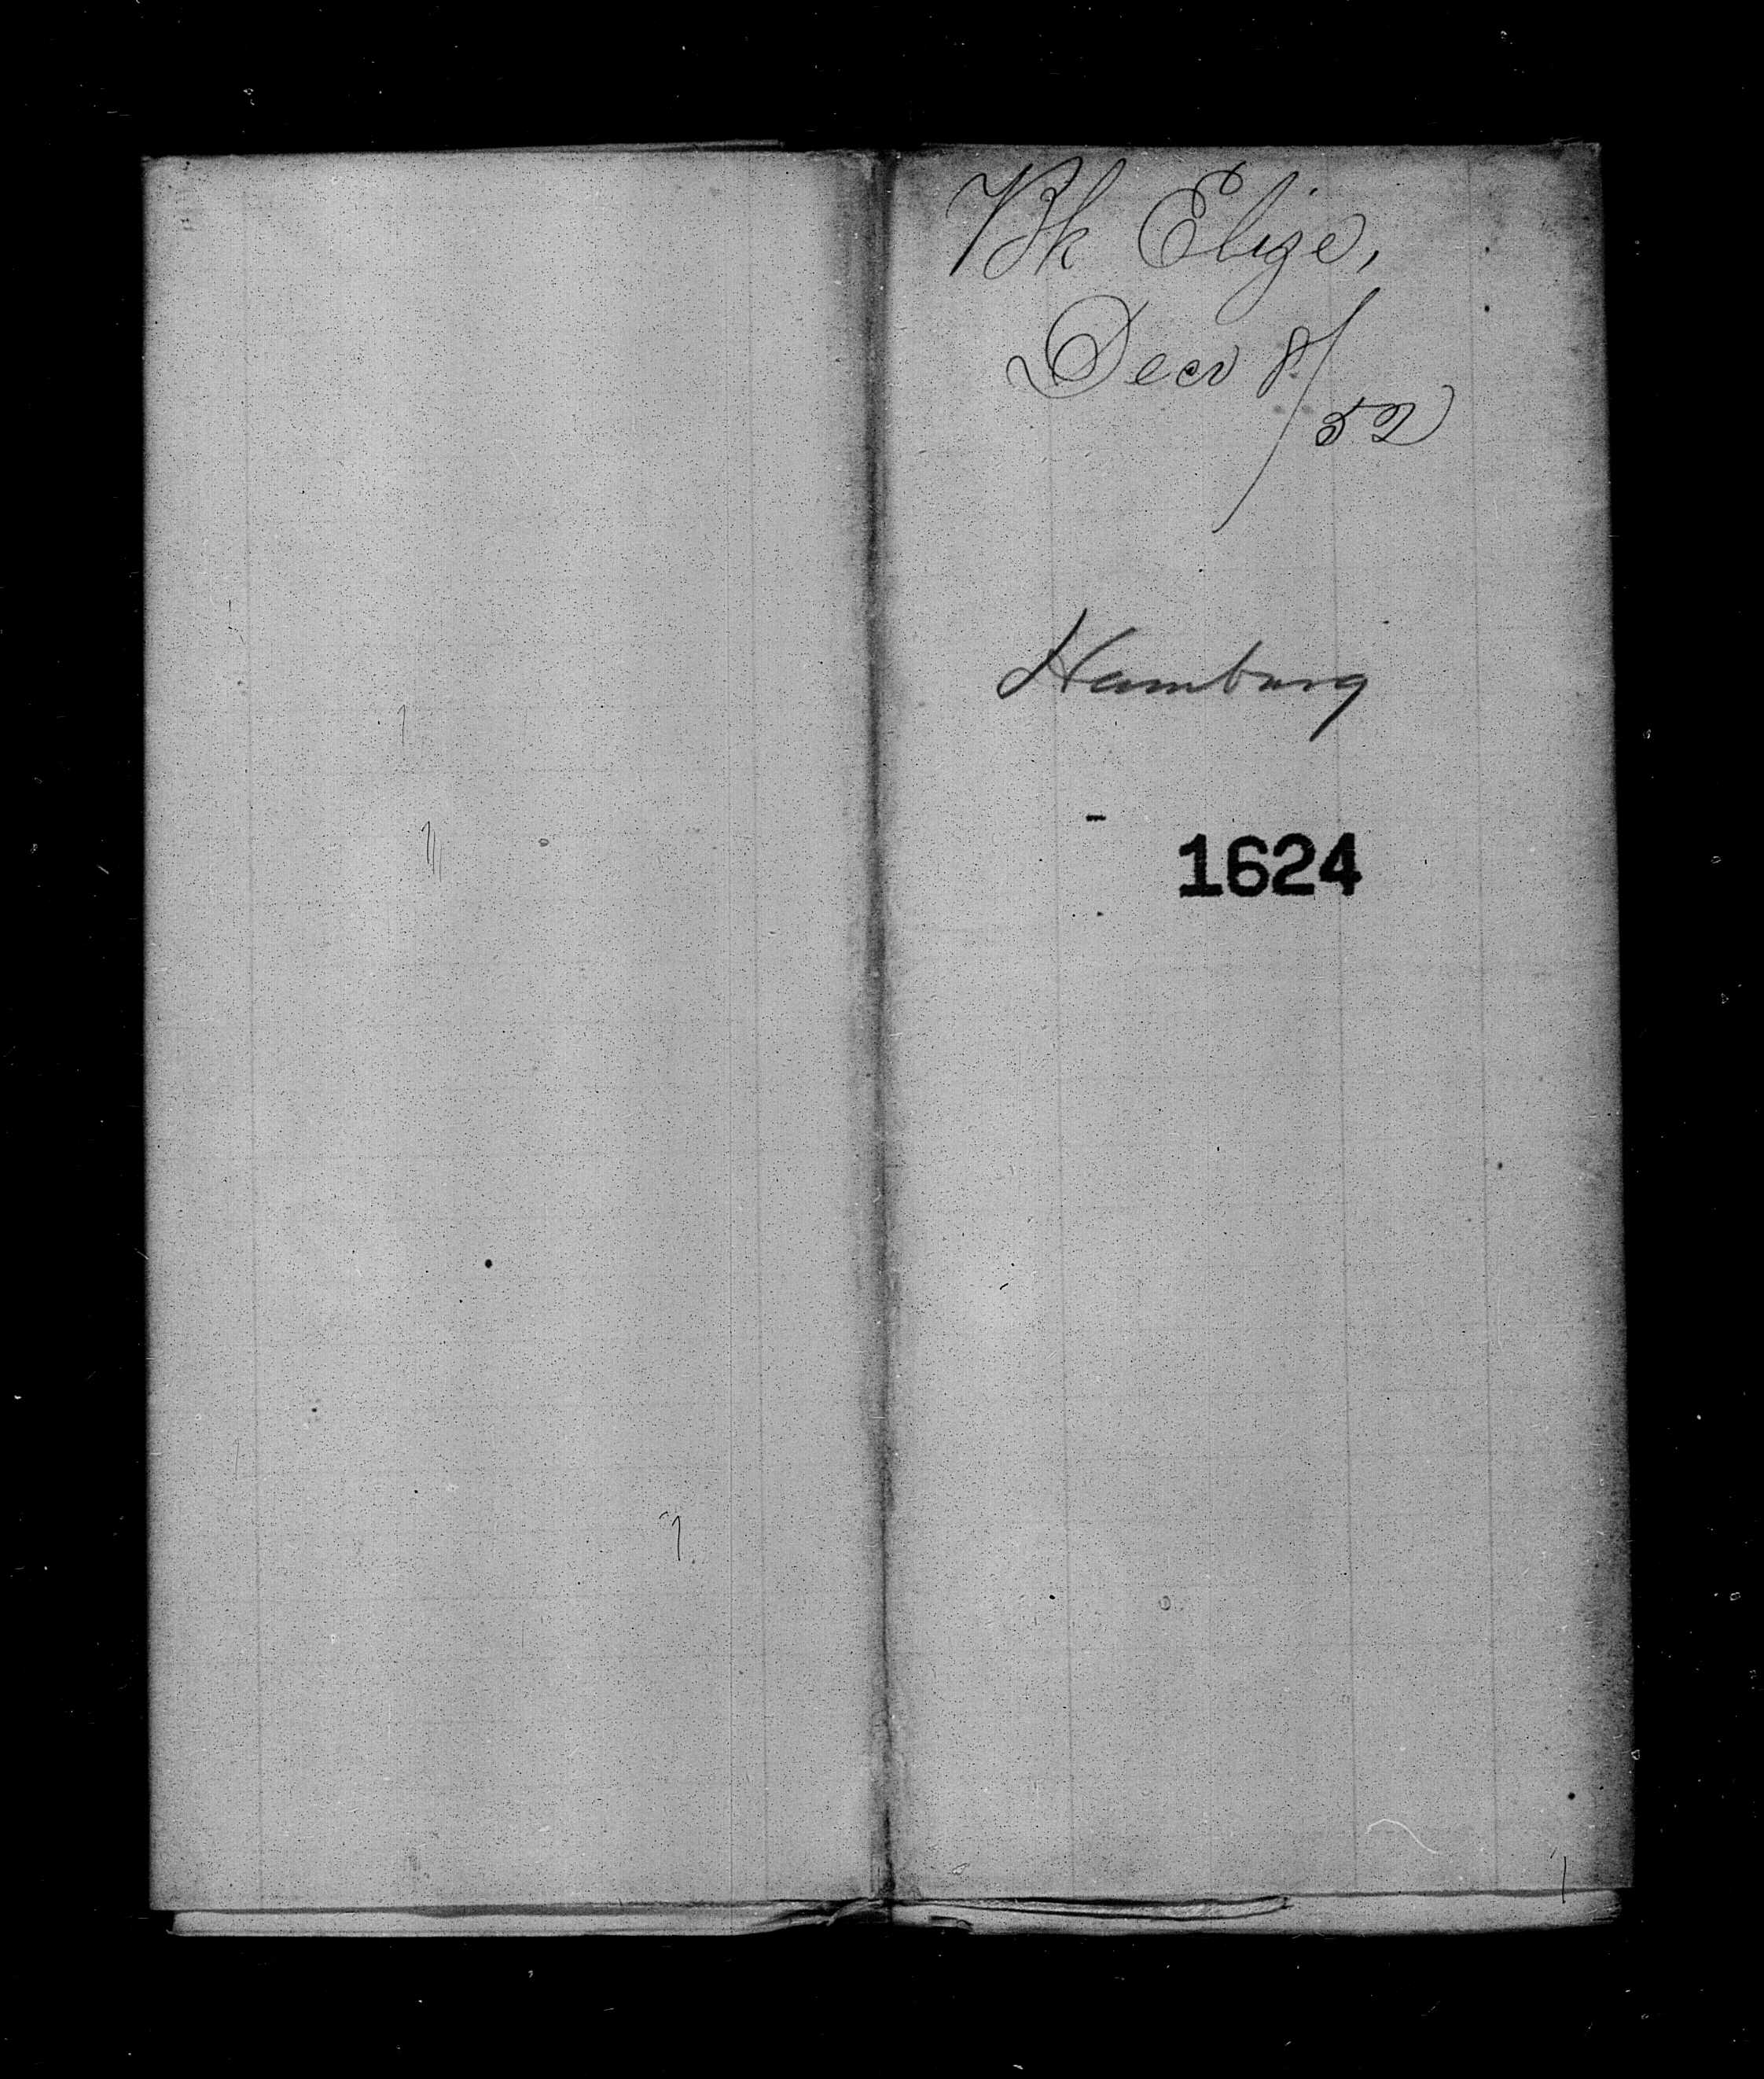 Bk Elize,
Decr 8/
52
Hamburg
1624